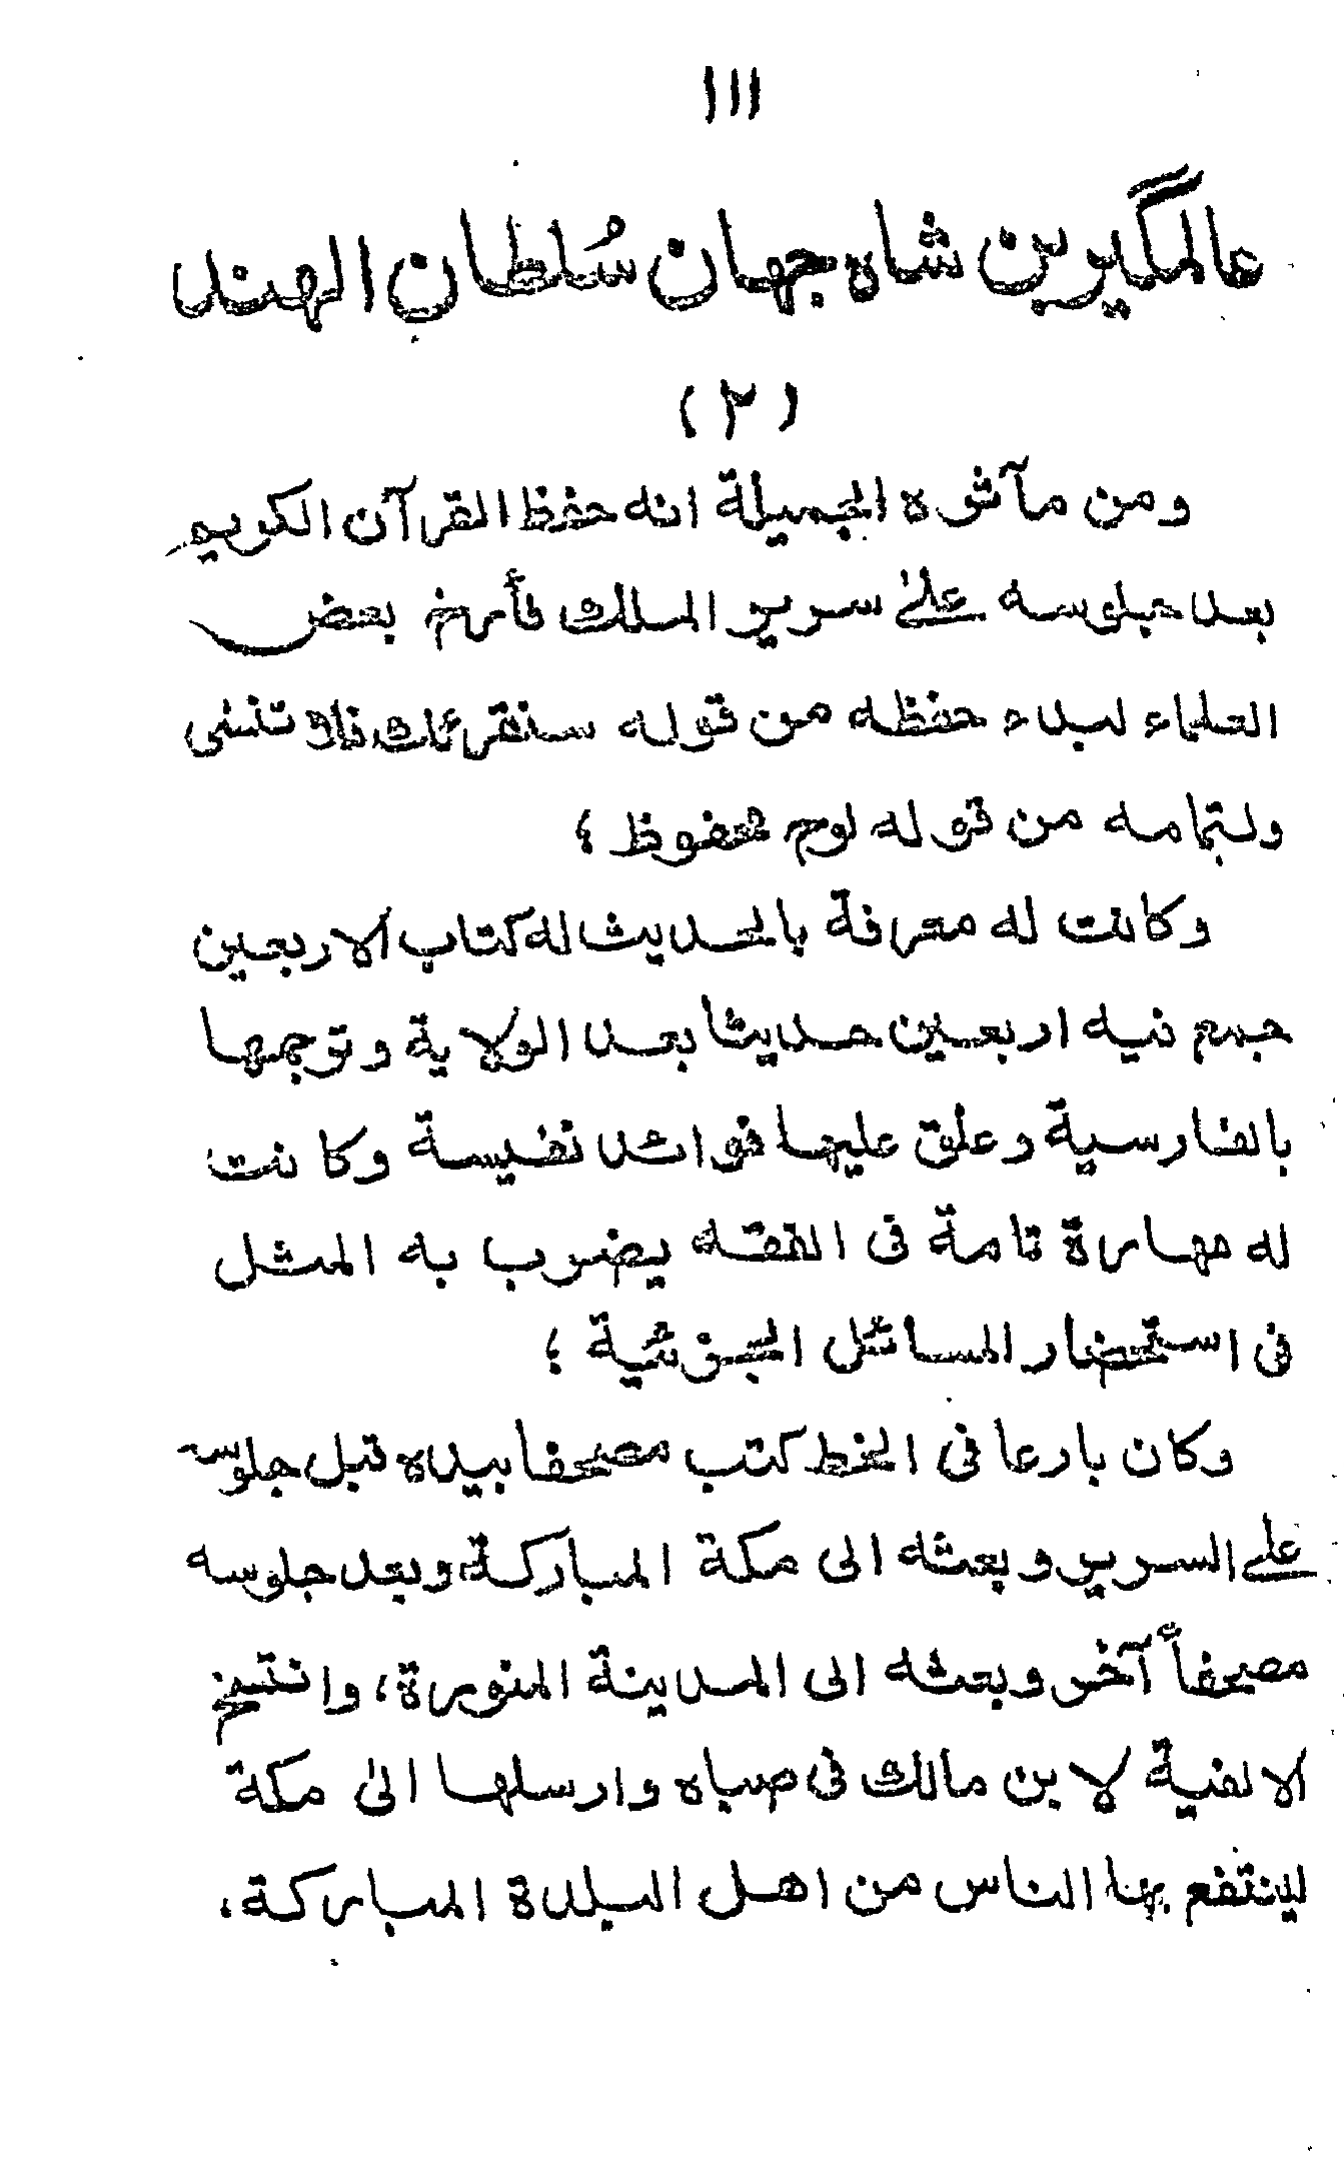 ١١١
عالمگير بن شاه جهان سُلطان الهند
(٢)
ومن مآثره الجميلة انه حفظ القرآن الكريم
بعد جلوسه على سرير الملك فأرخ بعض
العلماء لبدء حفظه من قوله سنقرئك فلا تنسى
ولتمامه من قوله لوح محفوظ ؛
وكانت له معرفة بالحديث له كتاب الاربعين
جمع فيه اربعين حديثا بعد الولاية وترجمها
بالفارسية وعلق عليها فوائد نفيسة وكانت
له مهارة تامة فى الفقه يضرب به المثل
فى استحضار المسائل الجزئية ؛
وكان بارعا فى الخط كتب مصحفا بيده قبل جلوسه
على السرير وبعثه الى مكة المباركة، وبعد جلوسه
مصحفاً آخر وبعثه الى المدينة المنورة، وانتسخ
الالفية لابن مالك فى صباه وارسلها الىٰ مكة
لينتفع بها الناس من اهل البلدة المباركة،